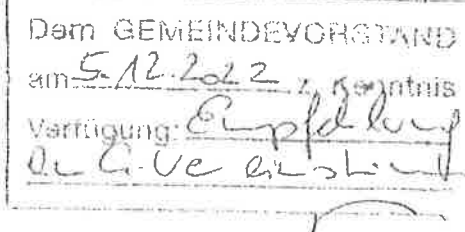 Dem GEMEINDEVORSTAND
am 5.12.2022 z. Kenntnis
Verfügung: Empfehlung
an G-Ve einstim